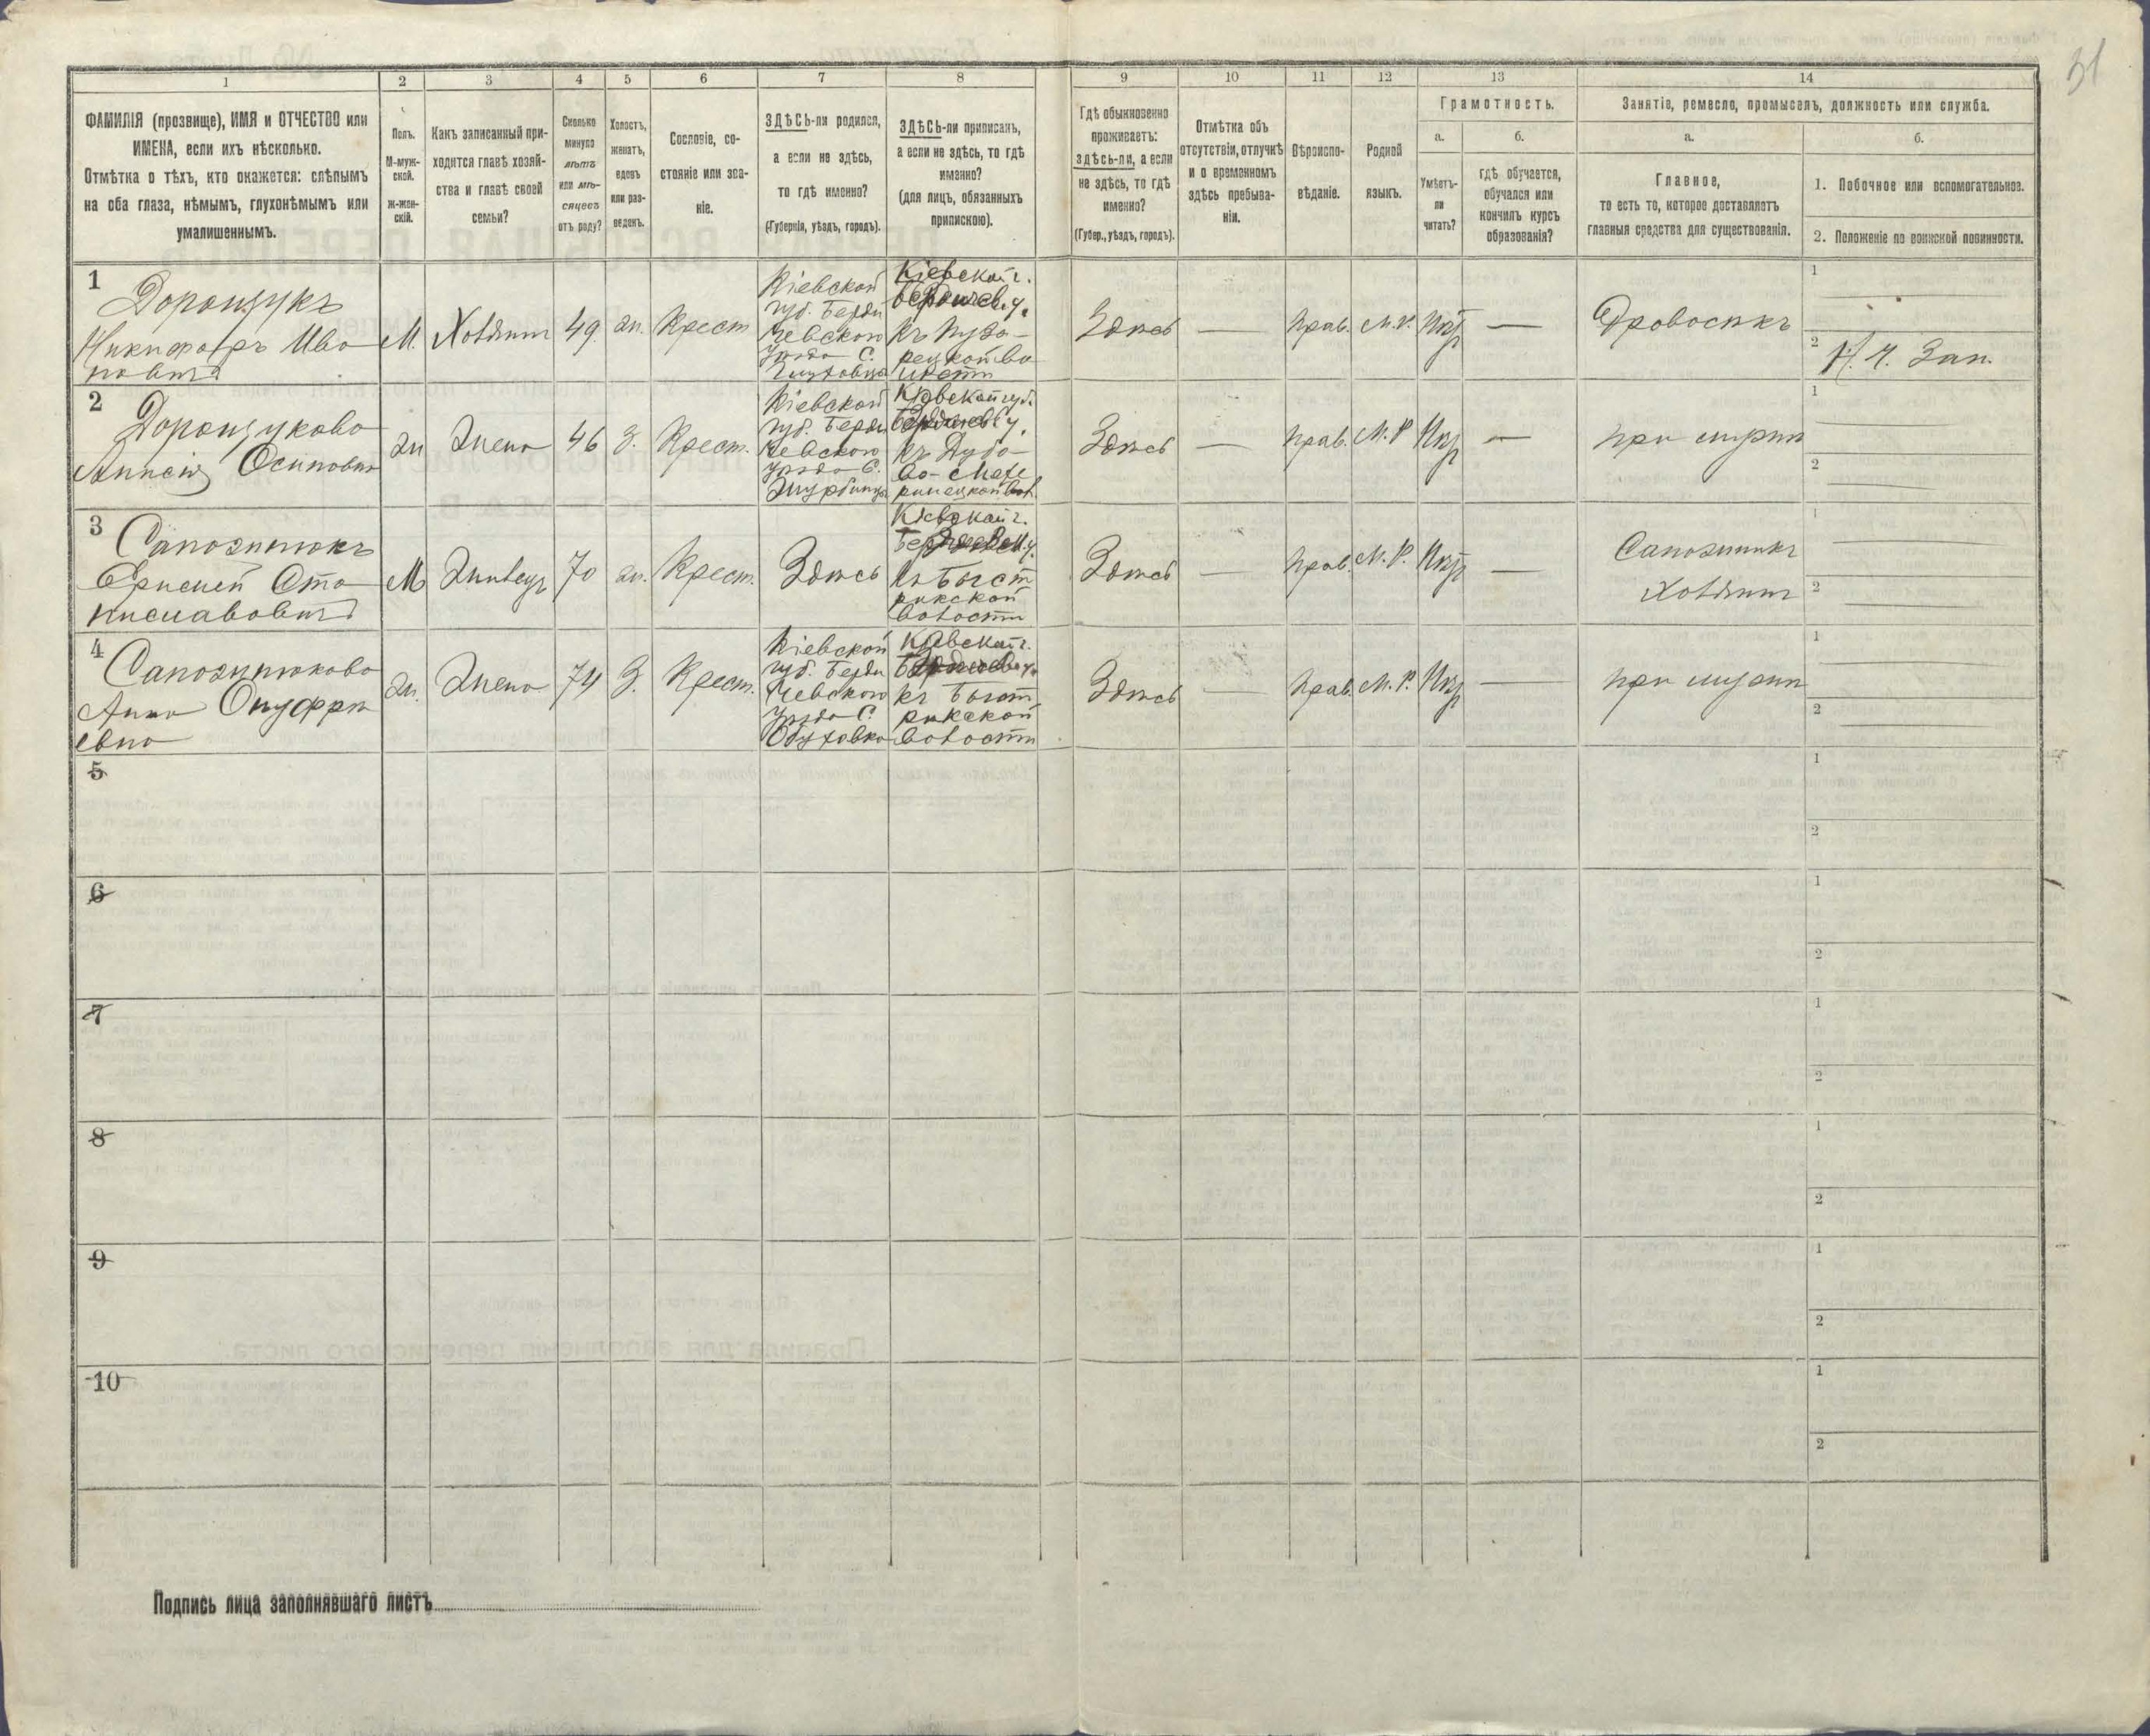 31
1
2
3
4
5
6
7
8
9
10
11
12
13
14
ФАМИЛІЯ (прозвище), ИМЯ и ОТЧЕСТВО или
ИМЕНА, если ихъ нѣсколько.
Отмѣтка о тѣхъ, кто окажется: слѣпымъ
на оба глаза, нѣмымъ, глухонѣмымъ или
умалишеннымъ.
Полъ.
М-муж-
ской.
Ж-жен-
скій.
Какъ записанный при-
ходится главѣ хозяй-
ства и главѣ своей
семьи?
Сколько
минуло
лѣтъ
или мѣ-
сяцевъ
отъ роду?
Холостъ,
женатъ,
вдовъ
или раз-
веденъ.
Сословіе, со-
стояніе или зва-
ніе.
ЗДѢСЬ-ли родился,
а если не здѣсь,
то гдѣ именно?
(Губернія, уѣздъ, городъ).
ЗДѢСЬ-ли приписанъ,
а если не здѣсь, то гдѣ
именно?
(для лицъ, обязанныхъ
припискою).
Гдѣ обыкновенно
проживаетъ:
здѣсь-ли, а если
не здѣсь, то гдѣ
именно?
(Губер., уѣздъ, городъ).
Отмѣтка объ
отсутствіи, отлучкѣ
и о временномъ
здѣсь пребыва-
ніи.
Вѣроиспо-
вѣданіе.
Родной
языкъ.
Грамотность.
а.
Умѣетъ-
ли
читать?
б.
гдѣ обучается,
обучался или
кончилъ курсъ
образованія?
Занятіе, ремесло, промыселъ, должность или служба.
а.
Главное,
то есть то, которое доставляетъ
главныя средства для существованія.
б.
1. Побочное или вспомогательное.
2. Положеніе по воинской повинности.
1
Дорощукъ
Никифоръ Ива
новичъ
М.
Хозяинъ
49.
жн.
Крест
Кіевской
губ. Берди
чевского
уѣзда С.
Кіевской г.
Бердичев. у.
Здѣсь
—
Прав.
М. Р.
Нѣт
—
Дровосѣкъ
1
2
Н. Ч. Зап.
2
Дорощукова
Анисія Осиповна
жн
Жена
46
З.
Крест.
Кіевской
губ. Берди
чевского
уѣзда С.
Кіевской губ.
Бердичев у.
Здѣсь
—
Прав.
М. Р
Нѣт
—
при мужѣ
1
2
3
Сапожнюкъ
Ста
ниславовичъ
М
Жилецъ
70
жн.
Крест.
Здѣсь
Кіевской г.
Бердичев. у.
къ Быст
рикской
волости
Здѣсь
—
Прав.
М. Р.
Нѣт
—
Сапожникъ
Хозяинъ
1
2
4
Сапожнюкова
Анна Онуфрі
евна
жн.
Жена
74
З.
Крест.
Кіевской
губ. Берди
чевского
уѣзда С.
Обуховка
Кіевской г.
Бердичев. у.
къ Быст
рикской
волости
Здѣсь
—
Прав.
М. Р.
Нѣт
—
при мужѣ
1
2
5
1
2
6
1
2
7
1
2
8
1
2
9
1
2
10
1
2
Подпись лица заполнявшаго листъ